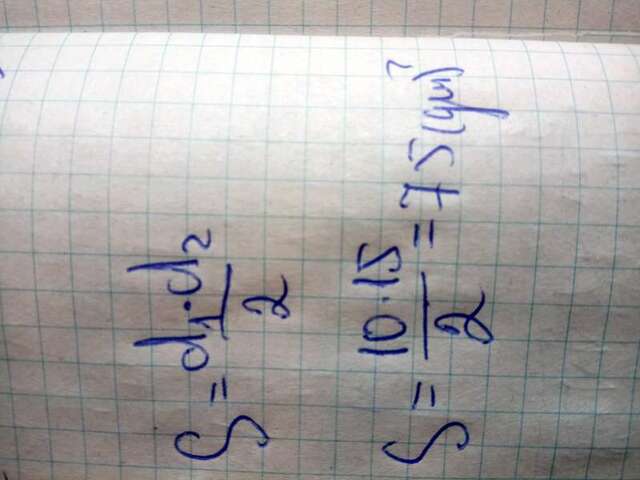 S = d₁·d₂/2
S = 10·15/2 = 75 (см²)